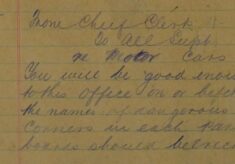 From Chief Clerk :
To All Supt
re Motor Cars
You will be good enou
to this office on or befor
the names of dangerous
corners in each
boards should between